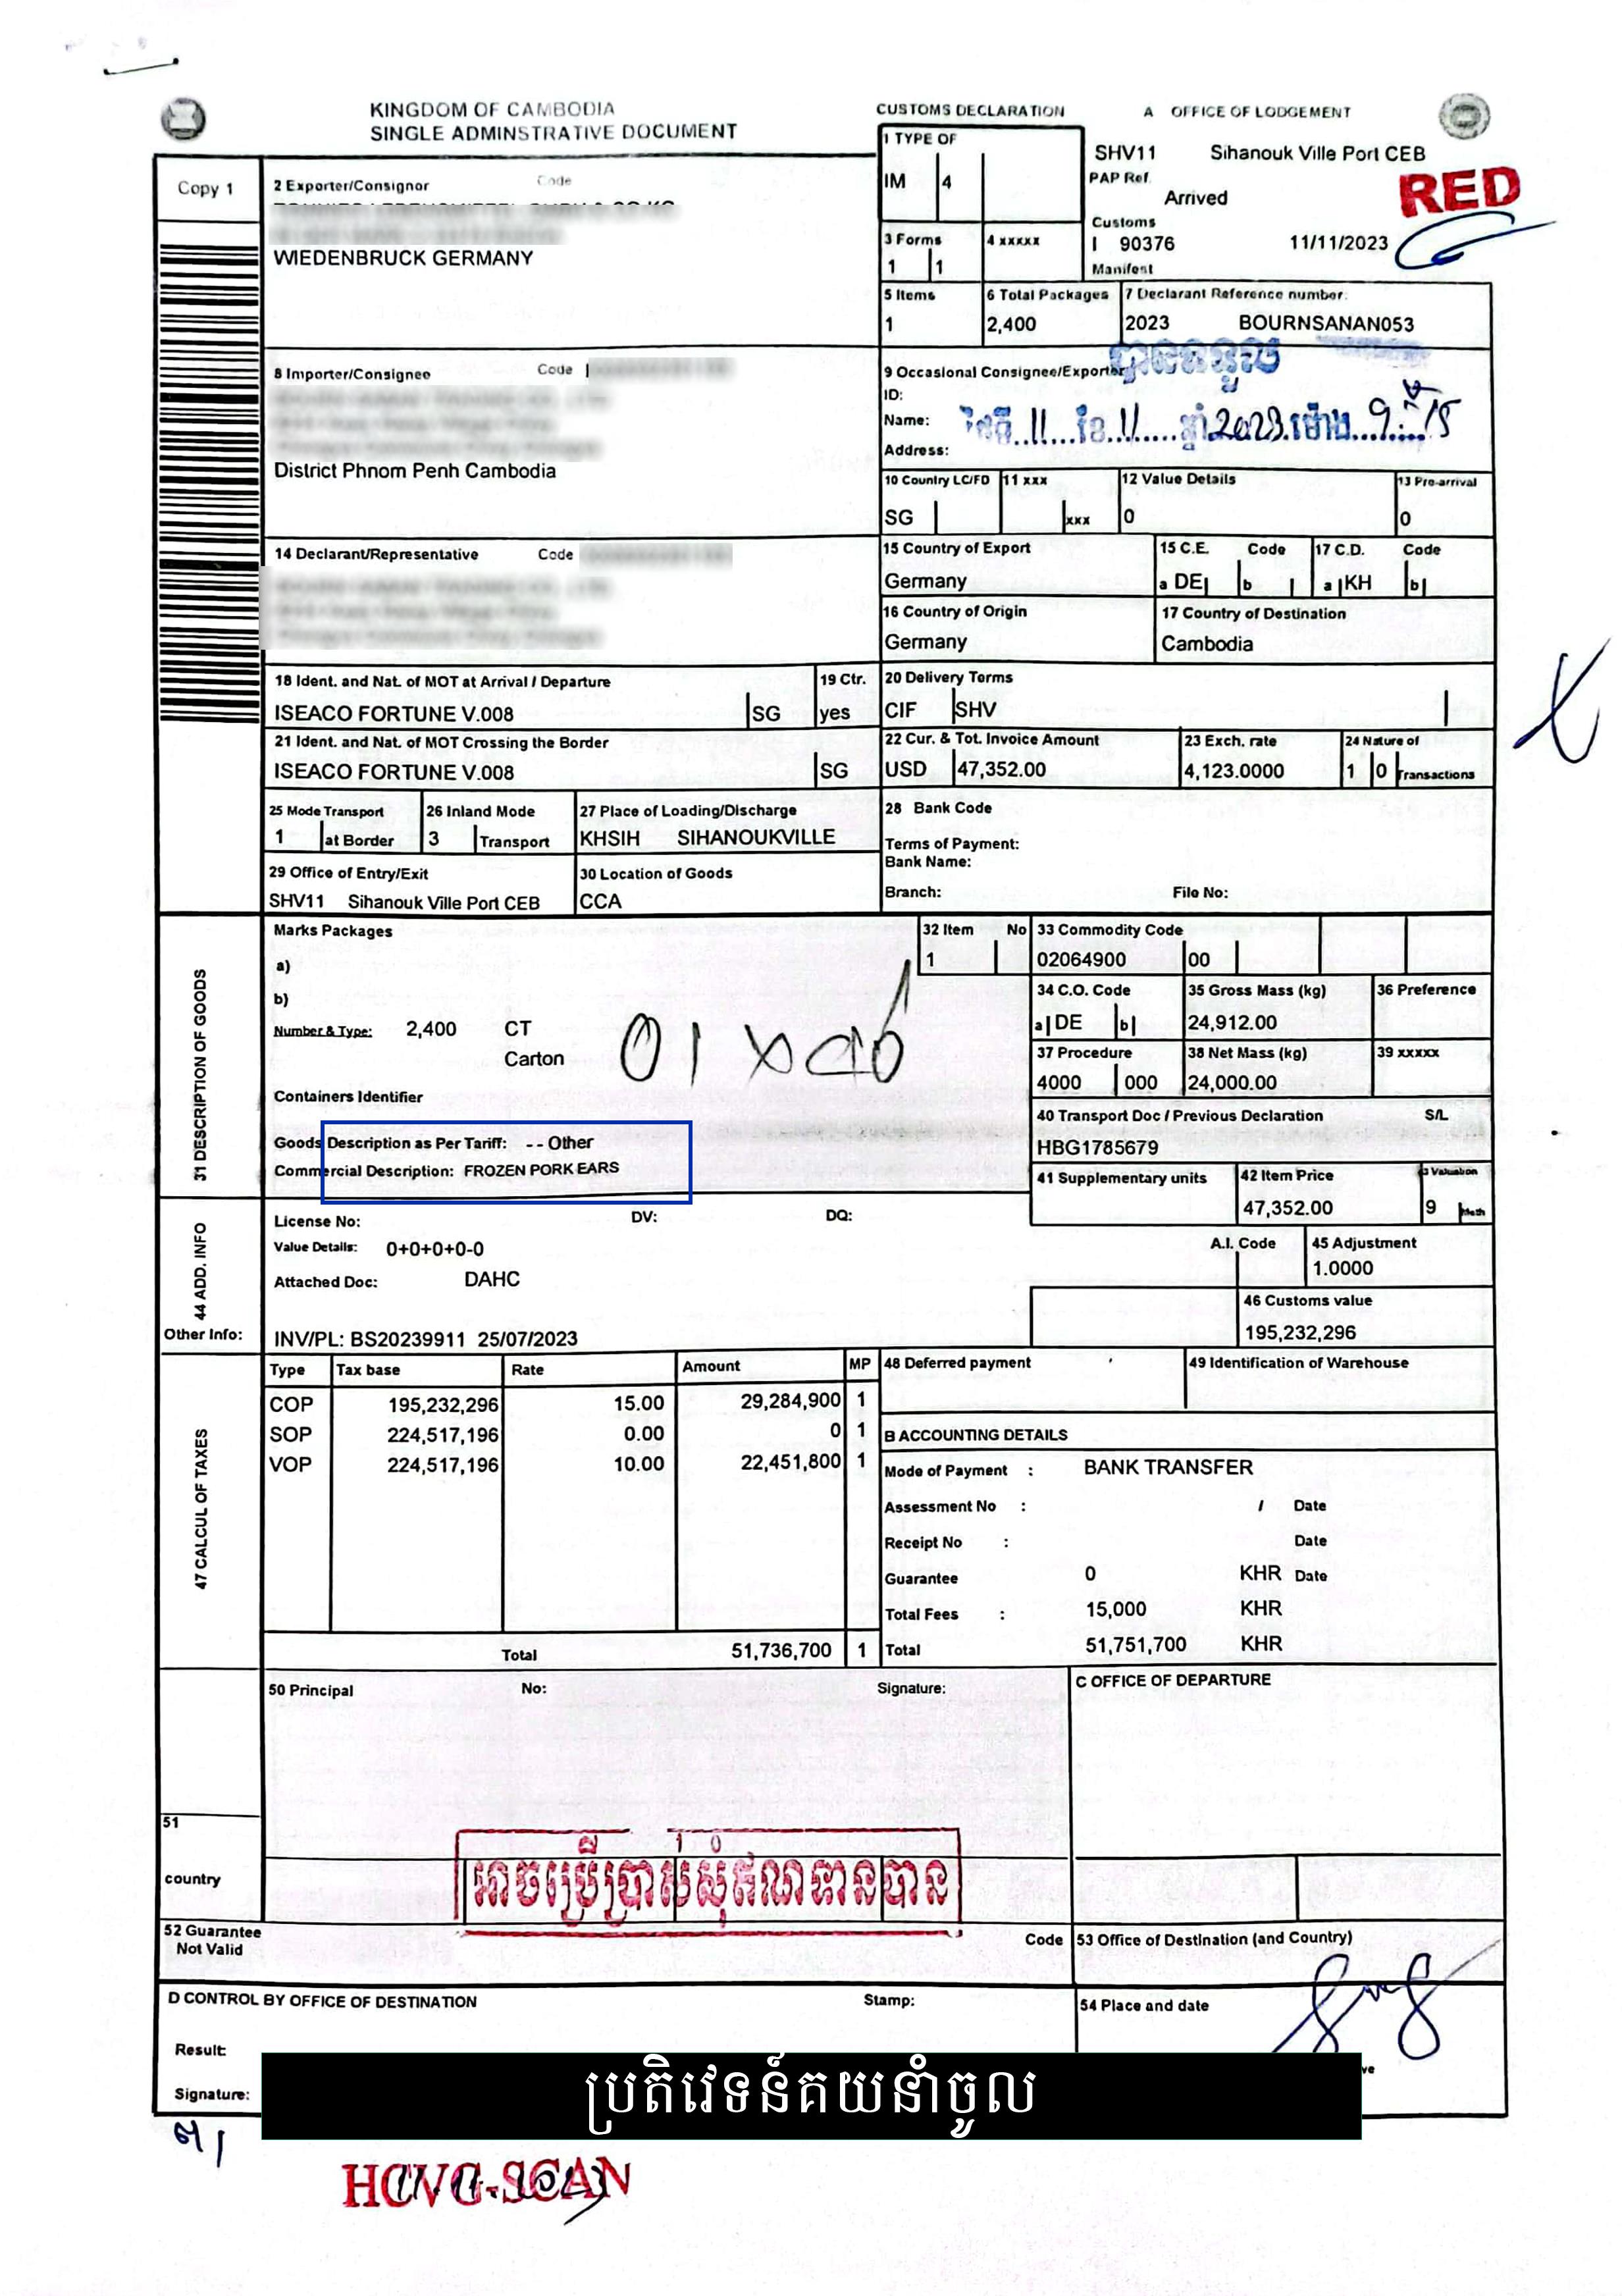 KINGDOM OF CAMBODIA
SINGLE ADMINSTRATIVE DOCUMENT
CUSTOMS DECLARATION
A OFFICE OF LODGEMENT
1 TYPE OF
IM 4
SHV11 Sihanouk Ville Port CEB
PAP Ref.
Arrived
RED
Customs
I 90376 11/11/2023
Manifest
Copy 1
2 Exporter/Consignor Code
WIEDENBRUCK GERMANY
3 Forms 4 xxxxx
1 1
5 Items 6 Total Packages 7 Declarant Reference number.
1 2,400 2023 BOURNSANAN053
8 Importer/Consignee Code
District Phnom Penh Cambodia
9 Occasional Consignee/Exporter
ID:
Name:
Address:
ថ្ងៃទី..11...ខែ.11.....ឆ្នាំ2023.ម៉ោង...9:...15
10 Country LC/FD 11 xxx 12 Value Details 13 Pre-arrival
SG xxx 0 0
14 Declarant/Representative Code
15 Country of Export 15 C.E. Code 17 C.D. Code
Germany a DE b a KH b
16 Country of Origin 17 Country of Destination
Germany Cambodia
18 Ident. and Nat. of MOT at Arrival / Departure 19 Ctr. 20 Delivery Terms
ISEACO FORTUNE V.008 SG yes CIF SHV
21 Ident. and Nat. of MOT Crossing the Border 22 Cur. & Tot. Invoice Amount 23 Exch. rate 24 Nature of
ISEACO FORTUNE V.008 SG USD 47,352.00 4,123.0000 1 0 Transactions
25 Mode Transport 26 Inland Mode 27 Place of Loading/Discharge 28 Bank Code
1 at Border 3 Transport KHSIH SIHANOUKVILLE
Terms of Payment:
Bank Name:
29 Office of Entry/Exit 30 Location of Goods
SHV11 Sihanouk Ville Port CEB CCA
Branch: File No:
31 DESCRIPTION OF GOODS
Marks Packages
a)
b)
Number & Type: 2,400 CT
Carton
Containers Identifier
Goods Description as Per Tariff: - - Other
Commercial Description: FROZEN PORK EARS
32 Item No 33 Commodity Code
1 02064900 00
34 C.O. Code 35 Gross Mass (kg) 36 Preference
a DE b 24,912.00
37 Procedure 38 Net Mass (kg) 39 xxxxx
4000 000 24,000.00
40 Transport Doc / Previous Declaration S/L
HBG1785679
41 Supplementary units 42 Item Price Valuation
47,352.00 9 Meth
44 ADD. INFO
Other Info:
License No: DV: DQ:
Value Details: 0+0+0+0-0
Attached Doc: DAHC
INV/PL: BS20239911 25/07/2023
A.I. Code 45 Adjustment
1.0000
46 Customs value
195,232,296
47 CALCUL OF TAXES
Type Tax base Rate Amount MP
COP 195,232,296 15.00 29,284,900 1
SOP 224,517,196 0.00 0 1
VOP 224,517,196 10.00 22,451,800 1
Total 51,736,700 1
48 Deferred payment 49 Identification of Warehouse
B ACCOUNTING DETAILS
Mode of Payment : BANK TRANSFER
Assessment No : / Date
Receipt No : Date
Guarantee 0 KHR Date
Total Fees : 15,000 KHR
Total 51,751,700 KHR
50 Principal No: Signature:
C OFFICE OF DEPARTURE
51
country
អាចប្រើប្រាស់សុំឥណទានបាន
52 Guarantee
Not Valid
Code 53 Office of Destination (and Country)
D CONTROL BY OFFICE OF DESTINATION Stamp:
54 Place and date
Result:
Signature:
ប្រតិវេទន៍គយនាំចូល
HCVG-SCAN